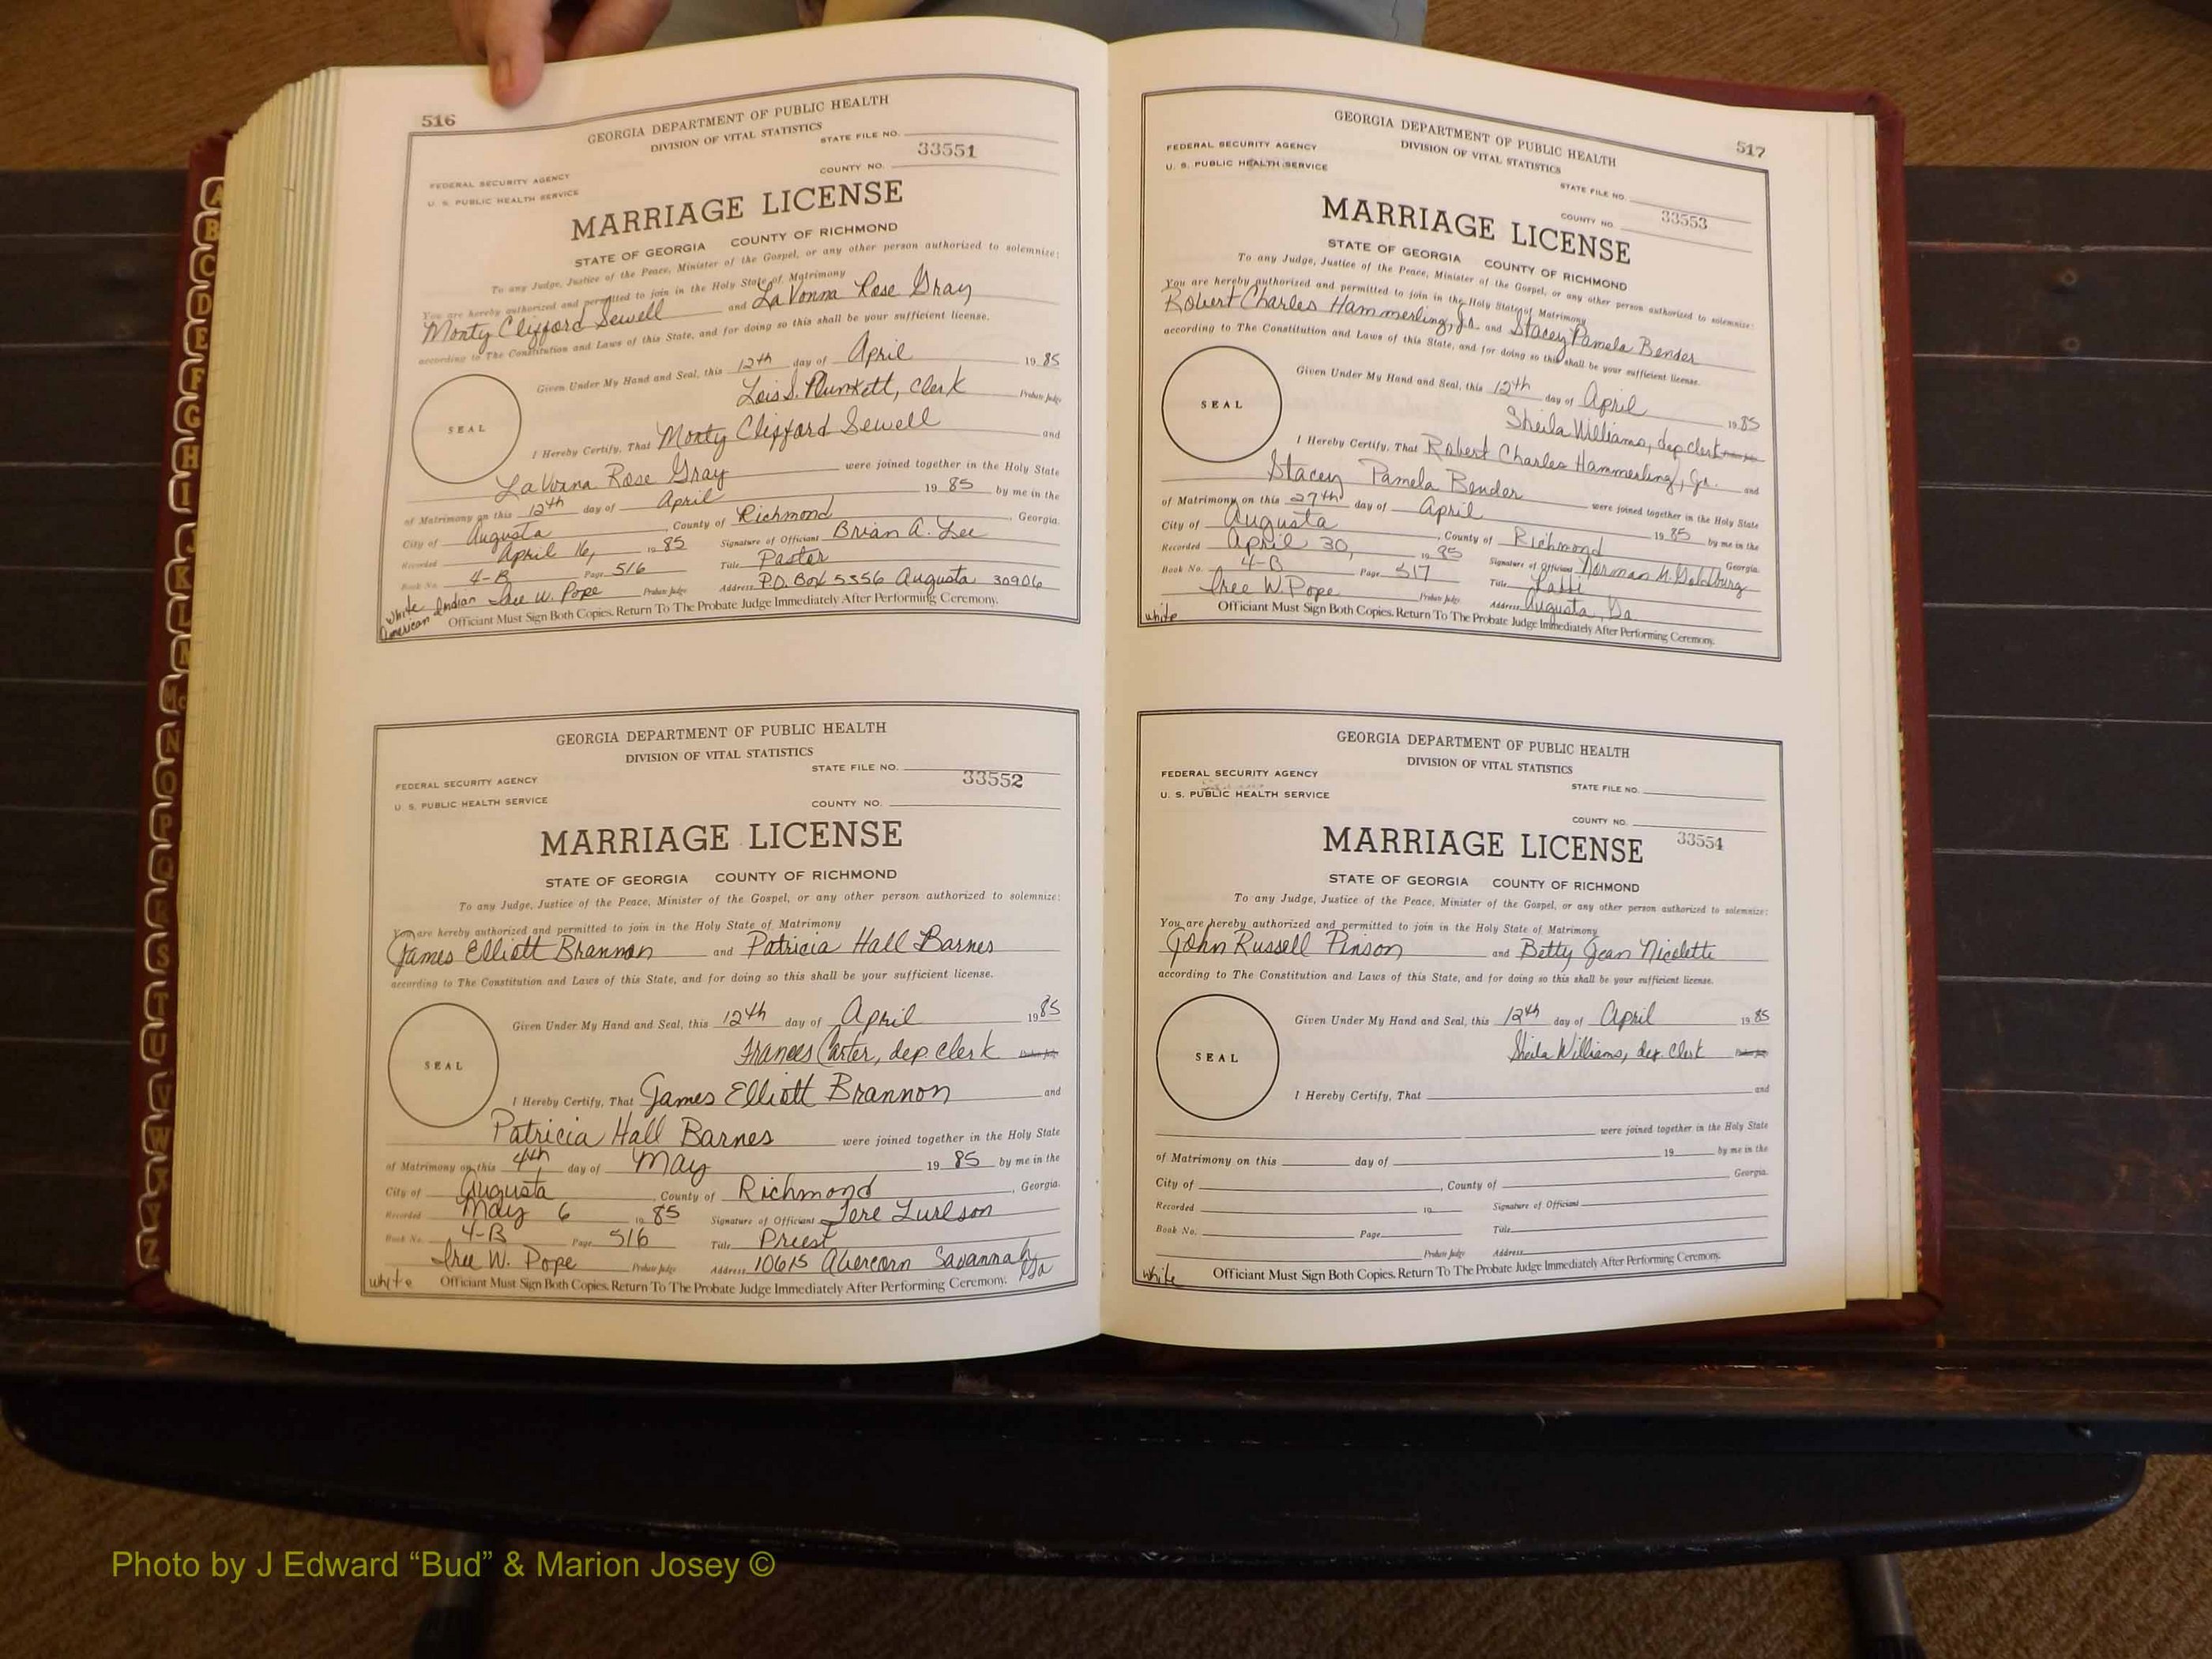 516
GEORGIA DEPARTMENT OF PUBLIC HEALTH
DIVISION OF VITAL STATISTICS
STATE FILE NO.
33551
COUNTY NO.
FEDERAL SECURITY AGENCY
U. S. PUBLIC HEALTH SERVICE
MARRIAGE LICENSE
STATE OF GEORGIA COUNTY OF RICHMOND
To any Judge, Justice of the Peace, Minister of the Gospel, or any other person authorized to solemnize:
You are hereby authorized and permitted to join in the Holy State of Matrimony
Monty Clifford Sewell and LaVonna Rose Gray
according to The Constitution and Laws of this State, and for doing so this shall be your sufficient license.
Given Under My Hand and Seal, this 12th day of April 19 85
Lois S. Plunkett, Clerk Probate Judge
SEAL
I Hereby Certify, That Monty Clifford Sewell and
LaVonna Rose Gray were joined together in the Holy State
of Matrimony on this 12th day of April 19 85 by me in the
City of Augusta, County of Richmond, Georgia.
Recorded April 16, 19 85 Signature of Officiant Brian A. Lee
Book No. 4-B Page 516 Title Pastor
Iree W. Pope Probate Judge Address P.O. Box 5356 Augusta 30906
White American Indian
Officiant Must Sign Both Copies. Return To The Probate Judge Immediately After Performing Ceremony.
GEORGIA DEPARTMENT OF PUBLIC HEALTH
DIVISION OF VITAL STATISTICS
STATE FILE NO.
33552
FEDERAL SECURITY AGENCY
U. S. PUBLIC HEALTH SERVICE
COUNTY NO.
MARRIAGE LICENSE
STATE OF GEORGIA COUNTY OF RICHMOND
To any Judge, Justice of the Peace, Minister of the Gospel, or any other person authorized to solemnize:
You are hereby authorized and permitted to join in the Holy State of Matrimony
James Elliott Brannon and Patricia Hall Barnes
according to The Constitution and Laws of this State, and for doing so this shall be your sufficient license.
Given Under My Hand and Seal, this 12th day of April 19 85
Frances Carter, dep. clerk Probate Judge
SEAL
I Hereby Certify, That James Elliott Brannon and
Patricia Hall Barnes were joined together in the Holy State
of Matrimony on this 4th day of May 19 85 by me in the
City of Augusta, County of Richmond, Georgia.
Recorded May 6 19 85 Signature of Officiant
Book No. 4-B Page 516 Title Priest
Iree W. Pope Probate Judge Address 10615 Abercorn Savannah Ga
white
Officiant Must Sign Both Copies. Return To The Probate Judge Immediately After Performing Ceremony.
517
GEORGIA DEPARTMENT OF PUBLIC HEALTH
DIVISION OF VITAL STATISTICS
FEDERAL SECURITY AGENCY
U. S. PUBLIC HEALTH SERVICE
STATE FILE NO.
33553
COUNTY NO.
MARRIAGE LICENSE
STATE OF GEORGIA COUNTY OF RICHMOND
To any Judge, Justice of the Peace, Minister of the Gospel, or any other person authorized to solemnize:
You are hereby authorized and permitted to join in the Holy State of Matrimony
Robert Charles Hammerling, Jr. and Stacey Pamela Bender
according to The Constitution and Laws of this State, and for doing so this shall be your sufficient license.
Given Under My Hand and Seal, this 12th day of April 19 85
Sheila Williams, dep clerk Probate Judge
SEAL
I Hereby Certify, That Robert Charles Hammerling, Jr. and
Stacey Pamela Bender were joined together in the Holy State
of Matrimony on this 27th day of April 19 85 by me in the
City of Augusta, County of Richmond Georgia.
Recorded April 30, 19 85 Signature of Officiant Norman M. Goldburg
Book No. 4-B Page 517 Title Rabbi
Iree W. Pope Probate Judge Address Augusta, Ga
white
Officiant Must Sign Both Copies. Return To The Probate Judge Immediately After Performing Ceremony.
GEORGIA DEPARTMENT OF PUBLIC HEALTH
DIVISION OF VITAL STATISTICS
FEDERAL SECURITY AGENCY
U. S. PUBLIC HEALTH SERVICE
STATE FILE NO.
COUNTY NO.
33554
MARRIAGE LICENSE
STATE OF GEORGIA COUNTY OF RICHMOND
To any Judge, Justice of the Peace, Minister of the Gospel, or any other person authorized to solemnize:
You are hereby authorized and permitted to join in the Holy State of Matrimony
John Russell Pinson and Betty Jean Nicolette
according to The Constitution and Laws of this State, and for doing so this shall be your sufficient license.
Given Under My Hand and Seal, this 12th day of April 19 85
Sheila Williams, dep. Clerk Probate Judge
SEAL
I Hereby Certify, That and
were joined together in the Holy State
of Matrimony on this day of 19 by me in the
City of , County of Georgia.
Recorded 19 Signature of Officiant
Book No. Page Title
Probate Judge Address
white
Officiant Must Sign Both Copies. Return To The Probate Judge Immediately After Performing Ceremony.
A
B
C
D
E
F
G
H
I
J
K
L
M
Mc
N
O
P
Q
R
S
T
U
V
W
Y
Z
Photo by J Edward “Bud” & Marion Josey ©